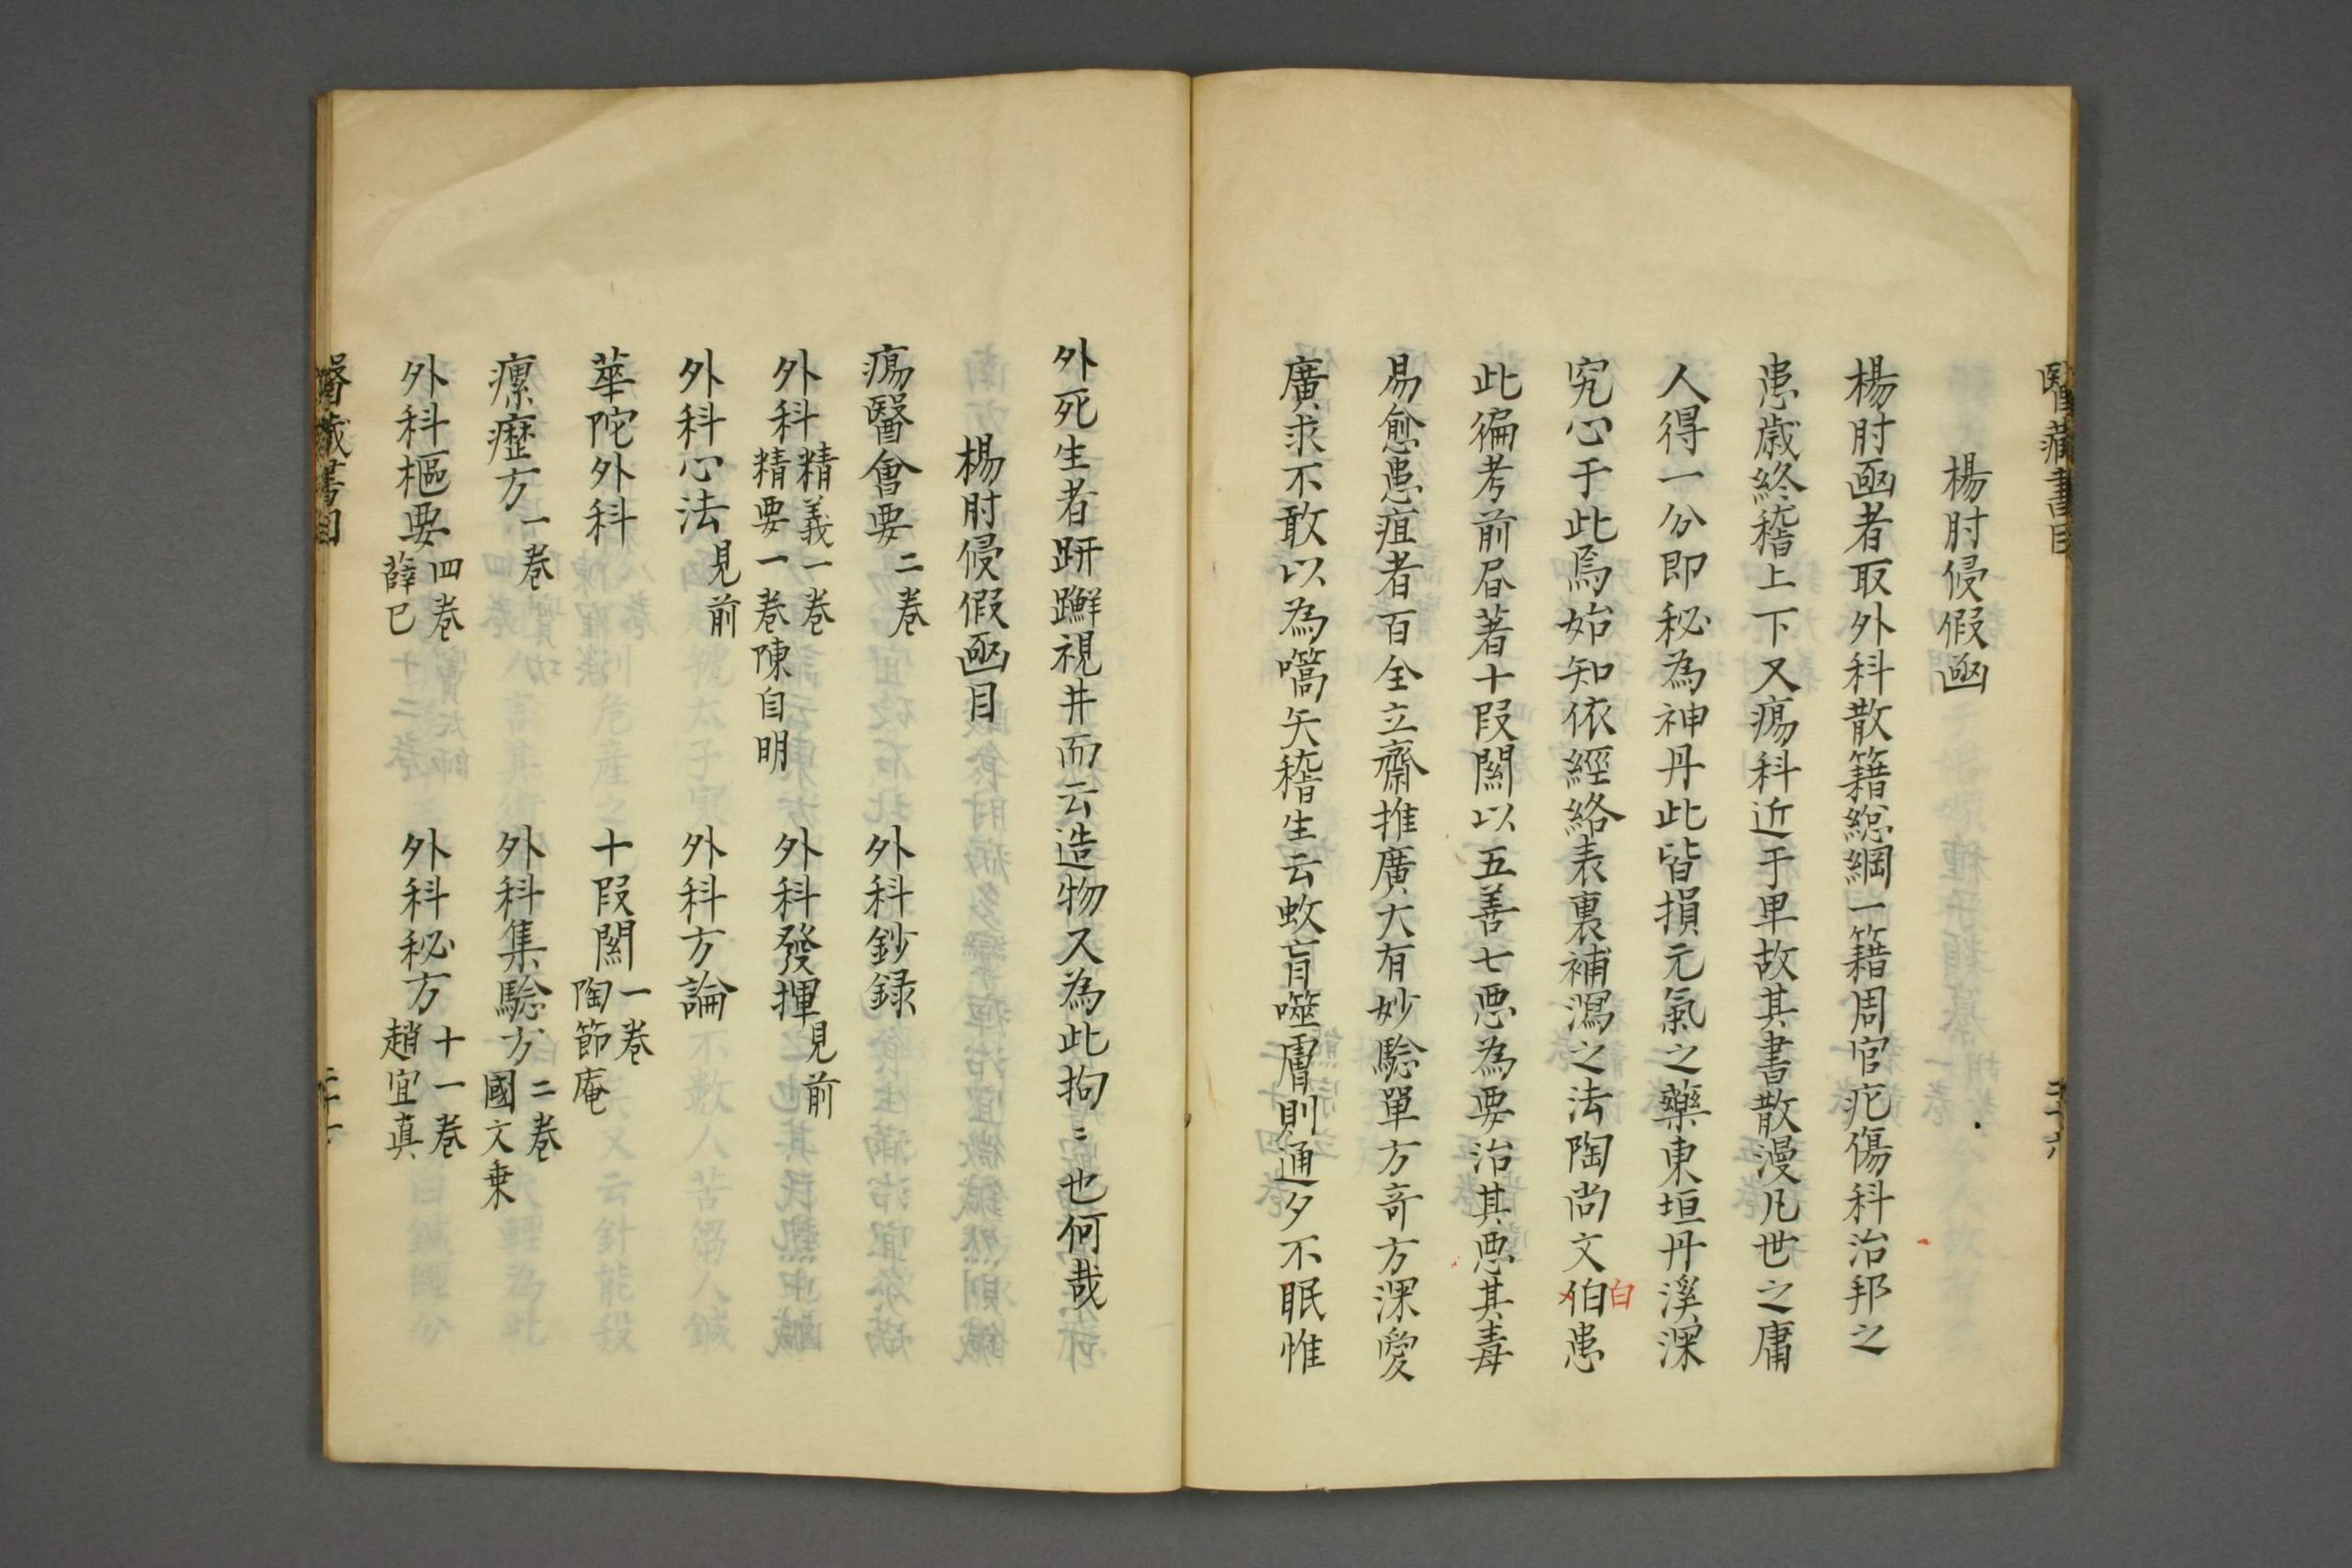 醫藏書目
楊肘侵假函
楊肘函者取外科散籍總綱一籍周官疕傷科治邦之
患歳終稽上下又瘍科近于卑故其書散漫凡世之庸
人得一分即秘為神丹此皆損元氣之藥東垣丹溪深
究心于此焉始知依經絡表裏補瀉之法陶尚文伯患
白
此徧考前㫺著十段關以五善七悪為要治其悪其毒
易愈患疽者百全立齋推廣大有妙騐單方竒方深愛
廣求不敢以為嚆矢稽生云蚊肓噬膚則通夕不眠惟
外死生者趼躃視井而云造物又為此拘〻也何哉
楊肘侵假函目
瘍醫會要二卷 外科鈔録
外科精義一卷精要一卷陳自明 外科發揮見前
外科心法見前 外科方論
華陀外科 十段關一卷陶節庵
瘰癧方一卷 外科集騐方二卷國文秉
外科樞要四卷薛已 外科秘方十一卷趙宜真
醫藏書目